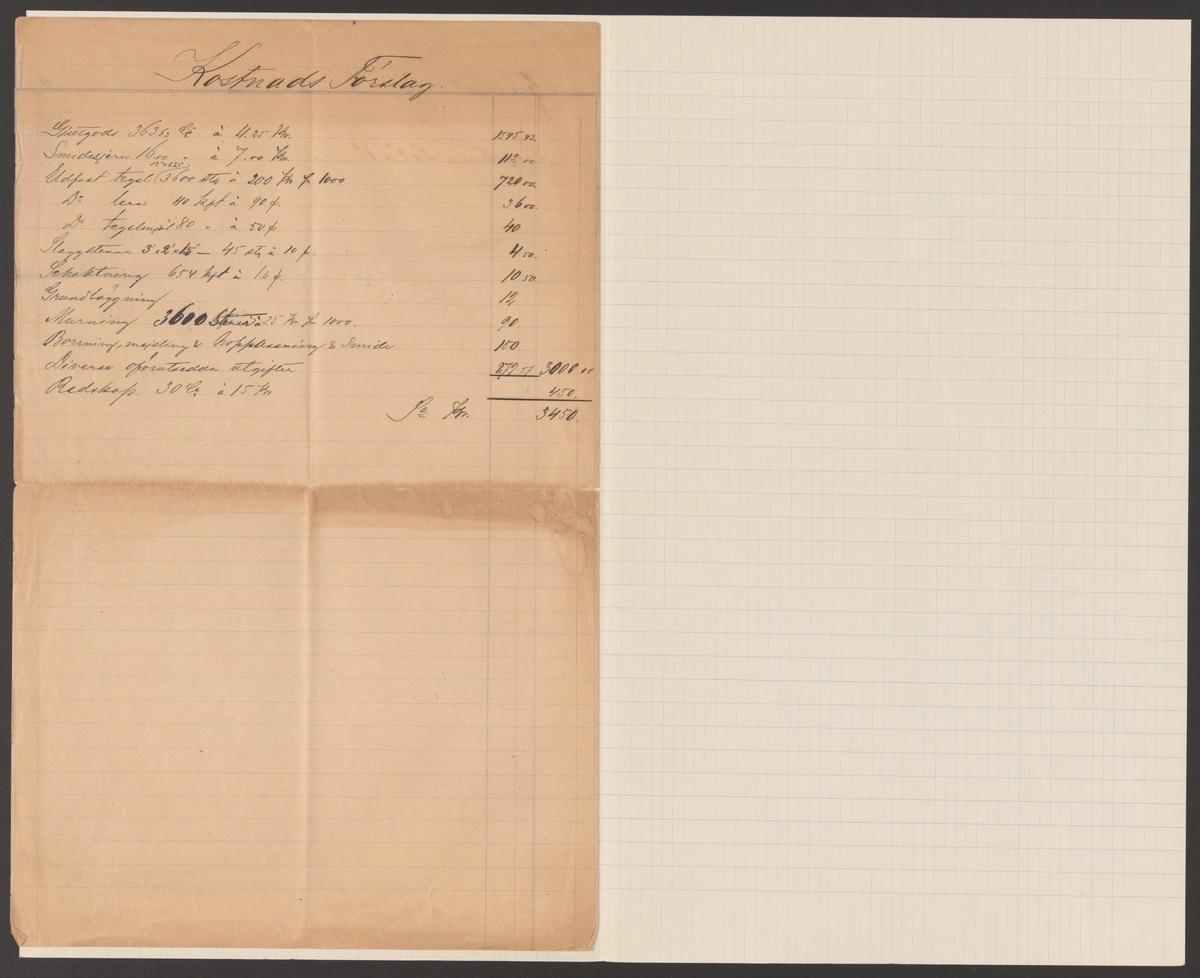 Kostnads Förslag.
Gjutgods 363,63 Ctr à 4.25 Kr. 1545,43.
Smidesjern 16,00 " à 7.00 Kr. 112,00
Eldfast tegel 3600 stk à 200 Kr pr 1000 720,00.
Do lera 40 kpf à 90 f. 36,00.
Do tegelmjöl 80 " à 50 f. 40
Slaggstenar 45 stk à 10 f. 4,50.
Schaktning 654 kpf à 1.6 f. 10,50.
Grundläggning 12.
Murning 3600 Stenar à 25 Kr pr 1000. 90.
Borrning, mejsling & hopplussning & Smide 150.
Diverse oförutsedda utgifter 279,57 3000,00
Redskap. 30 Ctr à 15 Kr 450.
Sa Kr. 3450.